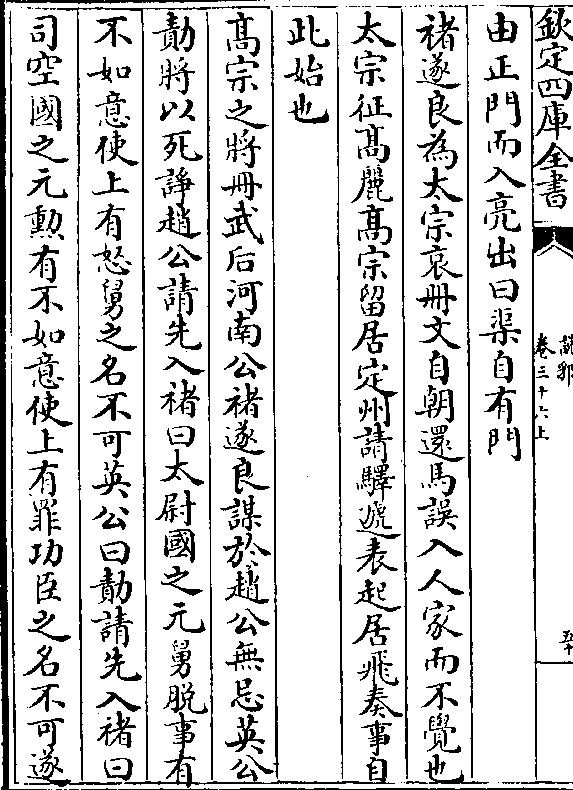 欽定四庫全書
說郛
卷三十六上
五十
由正門而入亮出曰渠自有門
褚遂良為太宗哀冊文自朝還馬誤入人家而不覺也
太宗征髙麗髙宗留居定州請驛遞表起居飛奏事自
此始也
髙宗之將冊武后河南公褚遂良謀於趙公無忌英公
勣將以死諍趙公請先入褚曰太尉國之元舅脱事有
不如意使上有怒舅之名不可英公曰勣請先入褚曰
司空國之元勲有不如意使上有罪功臣之名不可遂